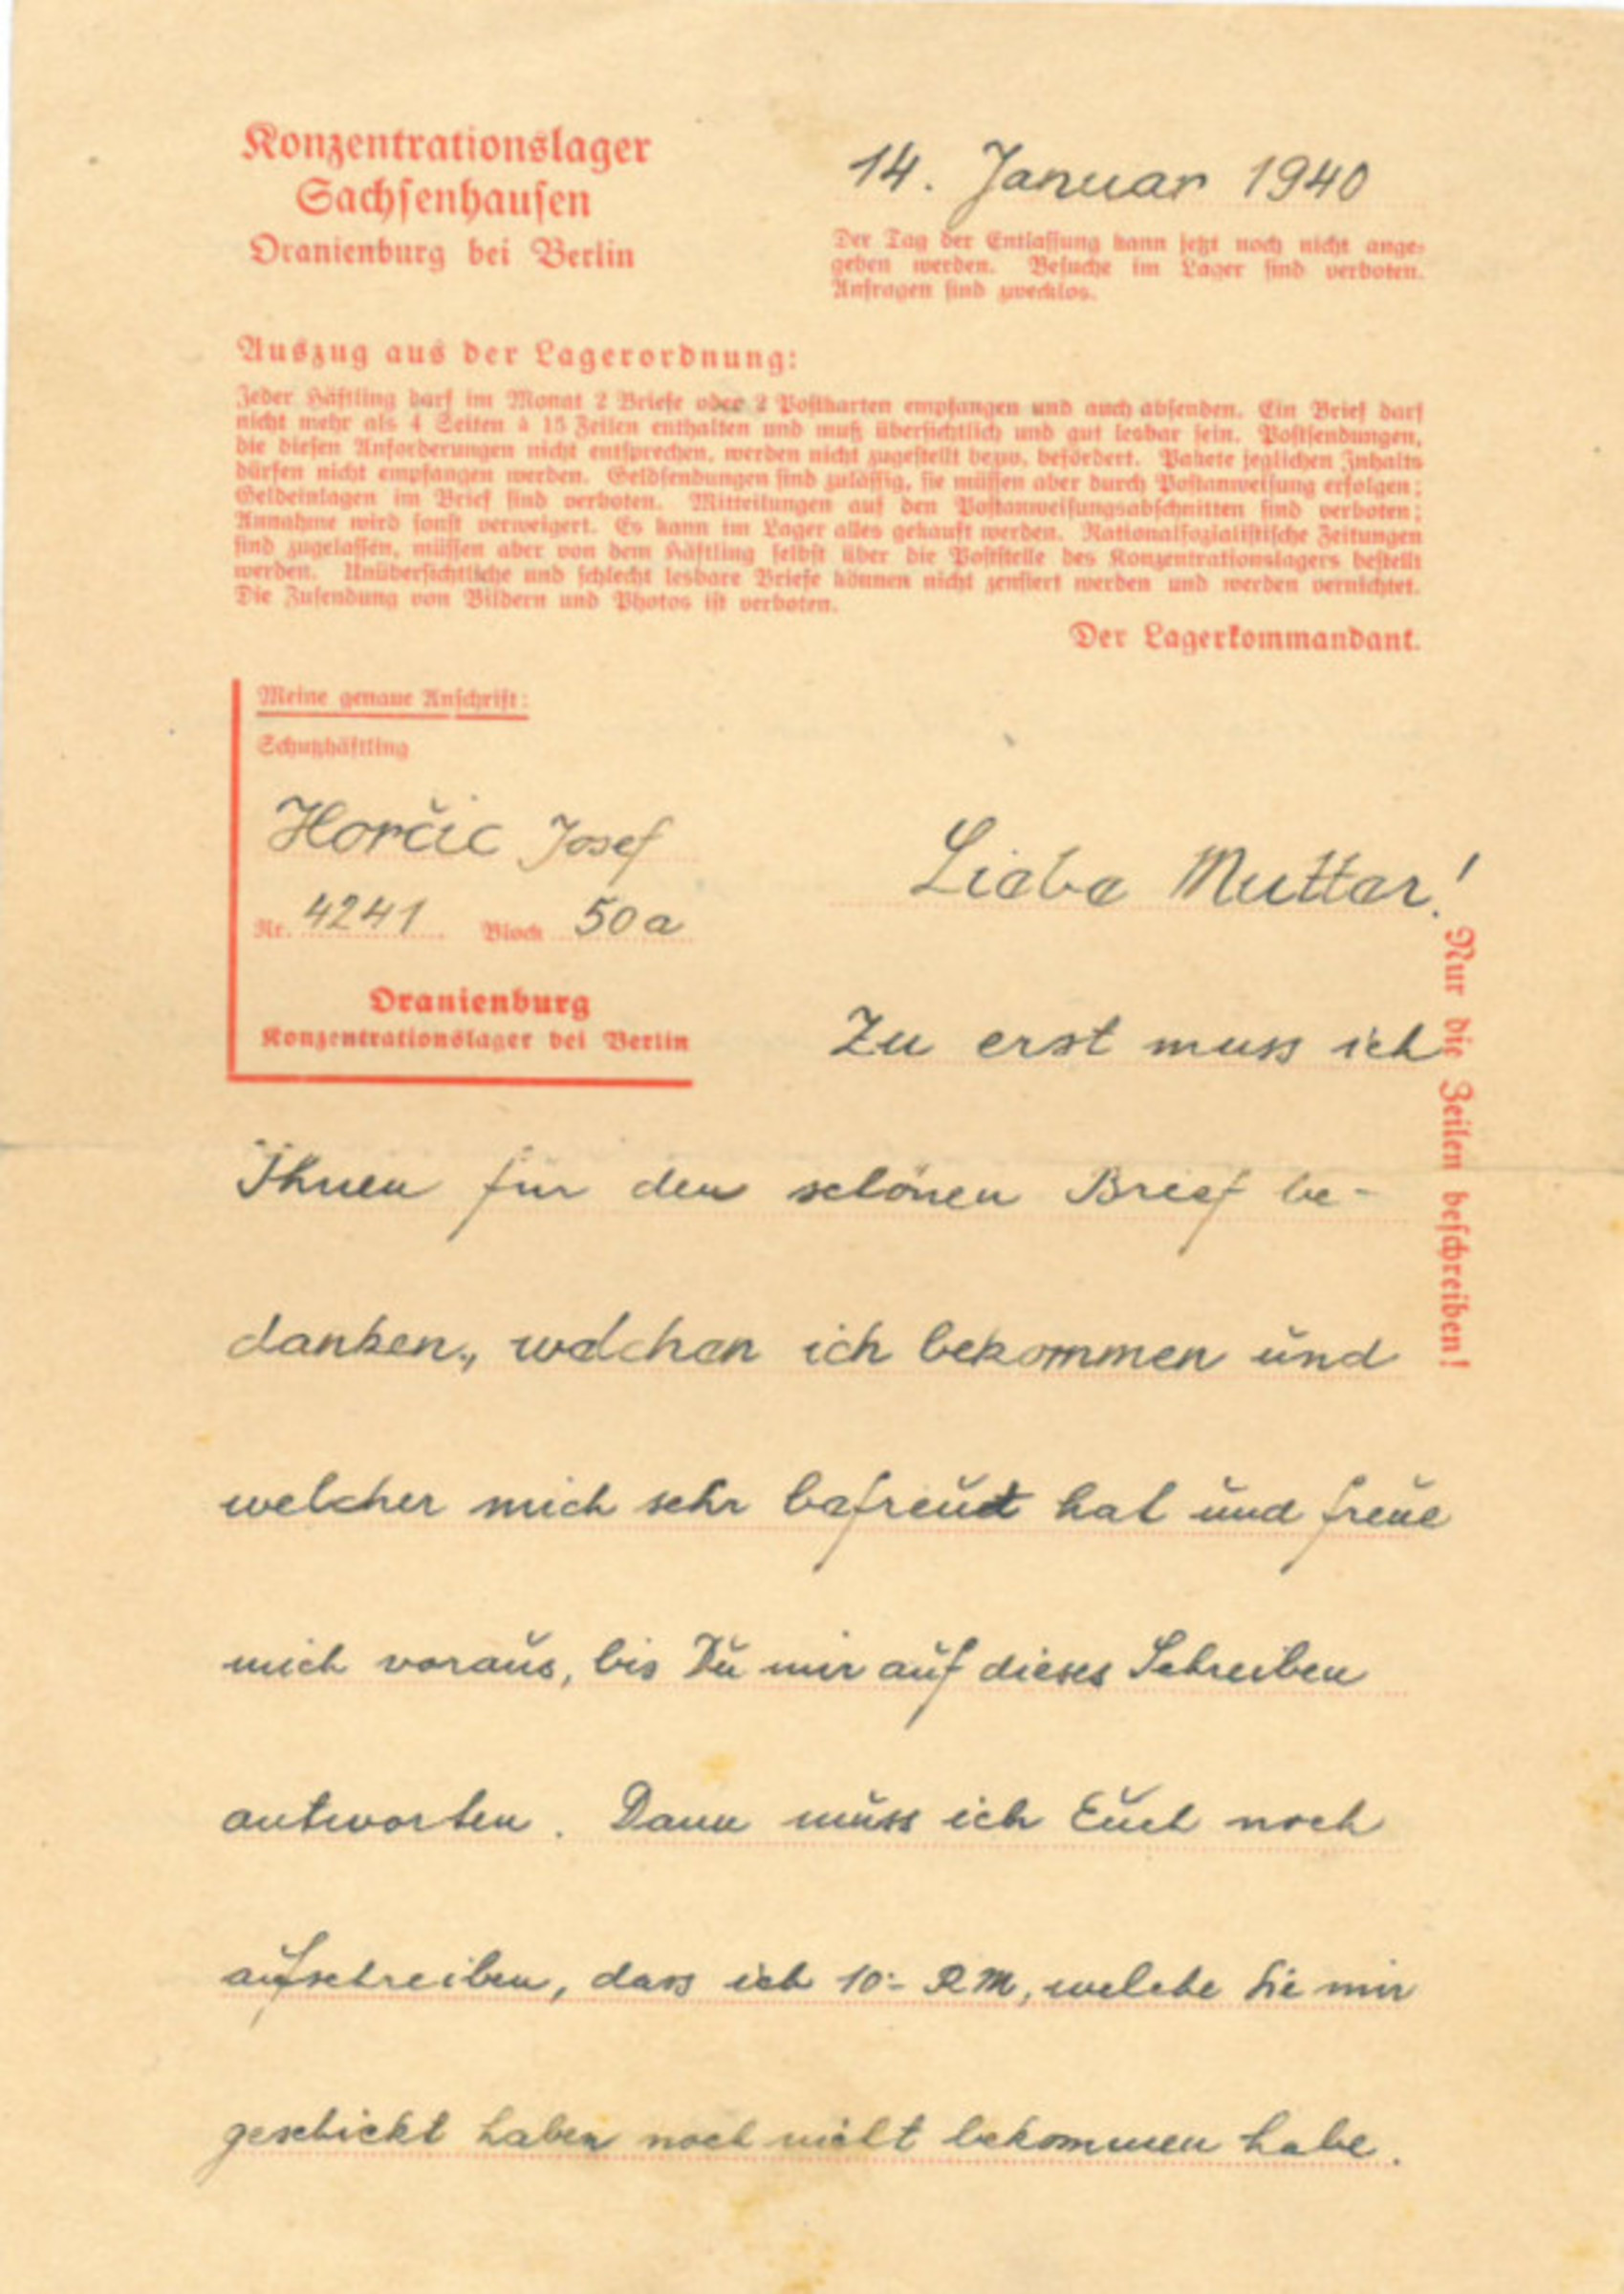 Konzentrationslager
Sachsenhausen
Oranienburg bei Berlin
14. Januar 1940
Der Tag der Entlassung kann jetzt noch nicht ange-
geben werden. Besuche im Lager sind verboten.
Anfragen sind zwecklos.
Auszug aus der Lagerordnung:
Jeder Häftling darf im Monat 2 Briefe oder 2 Postkarten empfangen und auch absenden. Ein Brief darf
nicht mehr als 4 Seiten à 15 Zeilen enthalten und muß übersichtlich und gut lesbar sein. Postsendungen,
die diesen Anforderungen nicht entsprechen, werden nicht zugestellt bezw. befördert. Pakete jeglichen Inhalts
dürfen nicht empfangen werden. Geldsendungen sind zulässig, sie müssen aber durch Postanweisung erfolgen;
Geldeinlagen im Brief sind verboten. Mitteilungen auf den Postanweisungsabschnitten sind verboten;
Annahme wird sonst verweigert. Es kann im Lager alles gekauft werden. Nationalsozialistische Zeitungen
sind zugelassen, müssen aber von dem Häftling selbst über die Poststelle des Konzentrationslagers bestellt
werden. Unübersichtliche und schlecht lesbare Briefe können nicht zensiert werden und werden vernichtet.
Die Zusendung von Bildern und Photos ist verboten.
Der Lagerkommandant.
Meine genaue Anschrift:
Schutzhäftling
Horčic Josef
Nr. 4241 Block 50a
Oranienburg
Konzentrationslager bei Berlin
Liebe Mutter!
Nur die Zeilen beschreiben!
Zu erst muss ich
Ihnen für den schönen Brief be-
danken, welchen ich bekommen und
welcher mich sehr befreut hat und freue
mich voraus, bis Du mir auf dieses Schreiben
antworten. Dann muss ich Euch noch
aufschreiben, dass ich 10.- RM, welche Sie mir
geschickt haben noch nicht bekommen habe.